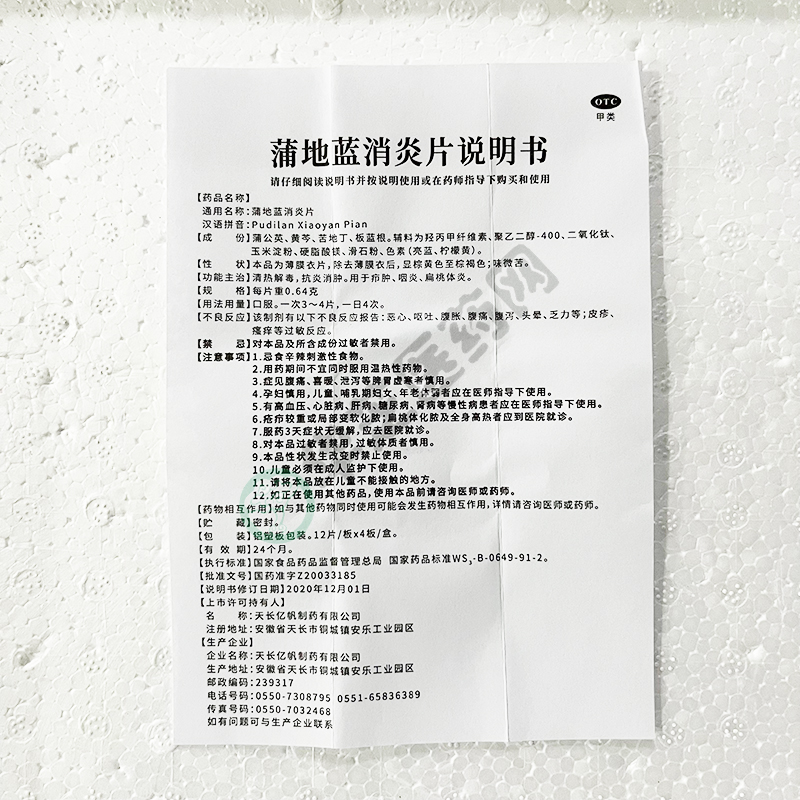 OTC
甲类
蒲地蓝消炎片说明书
请仔细阅读说明书并按说明使用或在药师指导下购买和使用
【药品名称】
通用名称:蒲地蓝消炎片
汉语拼音:Pudilan Xiaoyan Pian
【成 份】蒲公英、黄芩、苦地丁、板蓝根。辅料为羟丙甲纤维素、聚乙二醇-400、二氧化钛、
玉米淀粉、硬脂酸镁、滑石粉、色素(亮蓝、柠檬黄)。
【性 状】本品为薄膜衣片,除去薄膜衣后,显棕黄色至棕褐色;味微苦。
【功能主治】清热解毒,抗炎消肿。用于疖肿、咽炎、扁桃体炎。
【规 格】每片重0.64克
【用法用量】口服。一次3～4片,一日4次。
【不良反应】该制剂有以下不良反应报告:恶心、呕吐、腹胀、腹痛、腹泻、头晕、乏力等;皮疹、
瘙痒等过敏反应。
【禁 忌】对本品及所含成份过敏者禁用。
【注意事项】1.忌食辛辣刺激性食物。
2.用药期间不宜同时服用温热性药物。
3.症见腹痛、喜暖、泄泻等脾胃虚寒者慎用。
4.孕妇慎用,儿童、哺乳期妇女、年老体弱者应在医师指导下使用。
5.有高血压、心脏病、肝病、糖尿病、肾病等慢性病患者应在医师指导下使用。
6.疮疖较重或局部变软化脓;扁桃体化脓及全身高热者应到医院就诊。
7.服药3天症状无缓解,应去医院就诊。
8.对本品过敏者禁用,过敏体质者慎用。
9.本品性状发生改变时禁止使用。
10.儿童必须在成人监护下使用。
11.请将本品放在儿童不能接触的地方。
12.如正在使用其他药品,使用本品前请咨询医师或药师。
【药物相互作用】如与其他药物同时使用可能会发生药物相互作用,详情请咨询医师或药师。
【贮 藏】密封。
【包 装】铝塑板包装。12片/板x4板/盒。
【有 效 期】24个月。
【执行标准】国家食品药品监督管理总局 国家药品标准WS₃-B-0649-91-2。
【批准文号】国药准字Z20033185
【说明书修订日期】2020年12月01日
【上市许可持有人】
名 称:天长亿帆制药有限公司
注册地址:安徽省天长市铜城镇安乐工业园区
【生产企业】
企业名称:天长亿帆制药有限公司
生产地址:安徽省天长市铜城镇安乐工业园区
邮政编码:239317
电话号码:0550-7308795 0551-65836389
传真号码:0550-7032468
如有问题可与生产企业联系
医药网